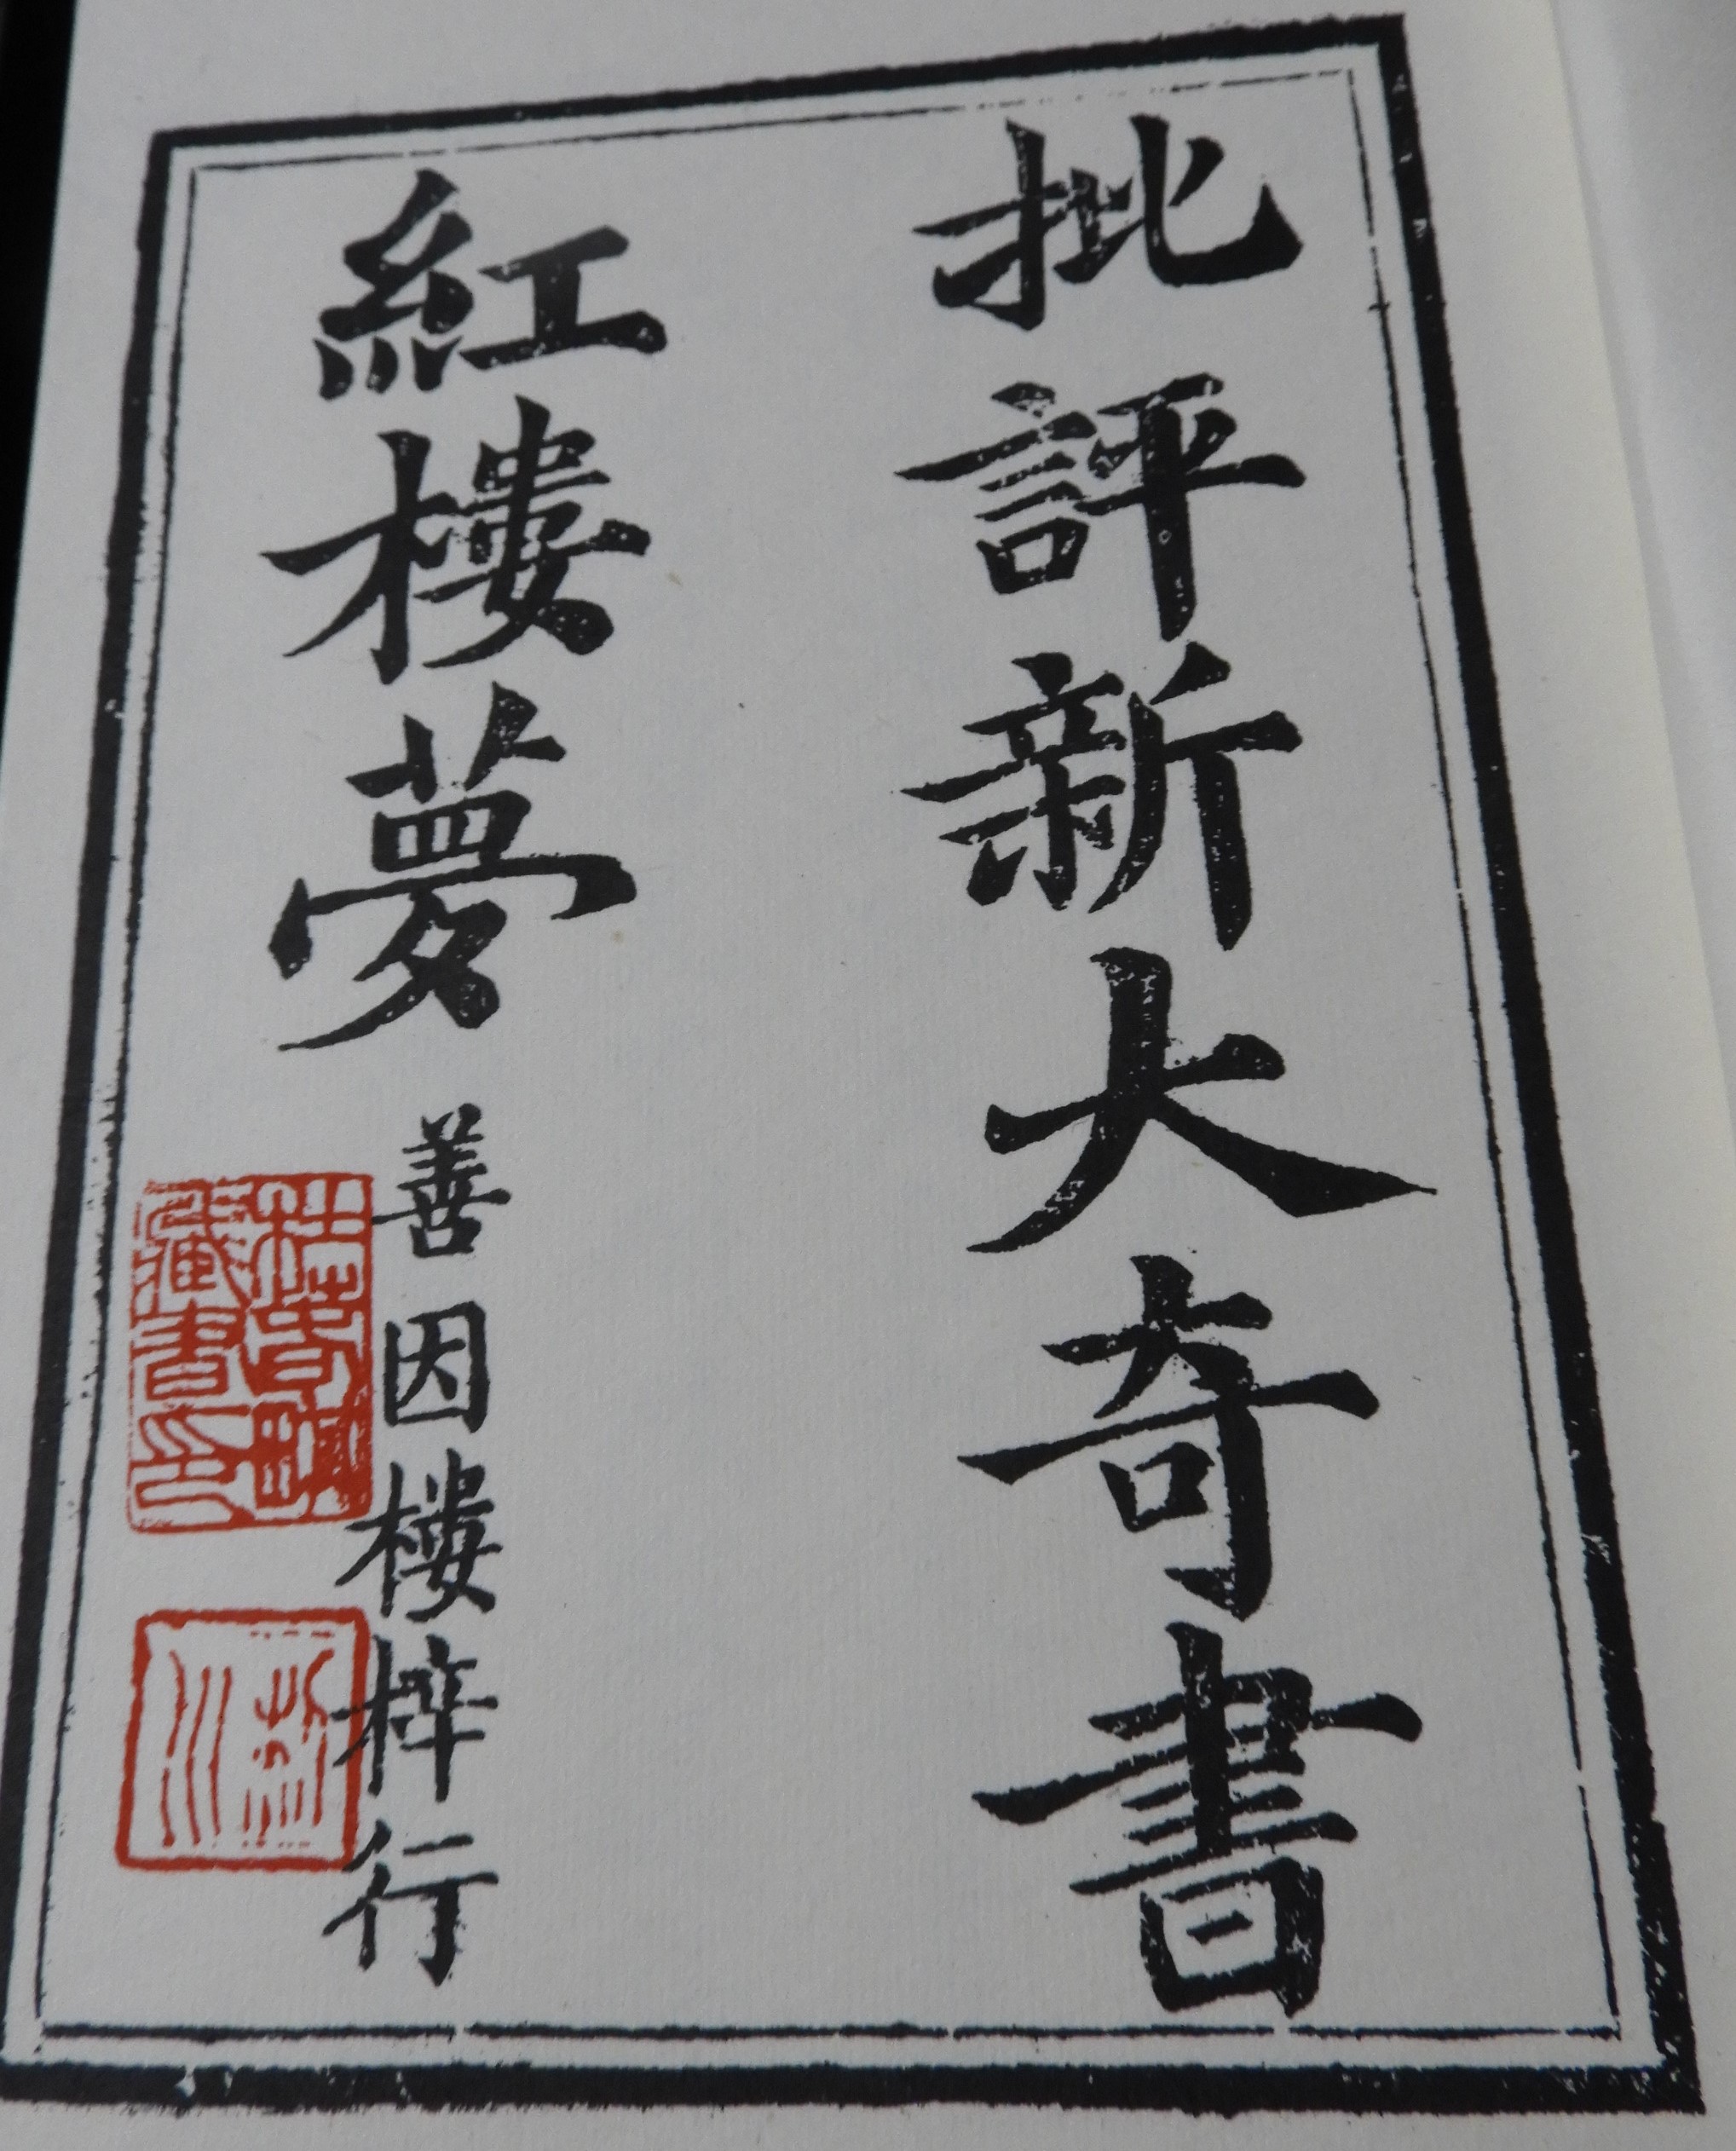 批評新大奇書
紅樓夢
善因樓梓行
藏書印